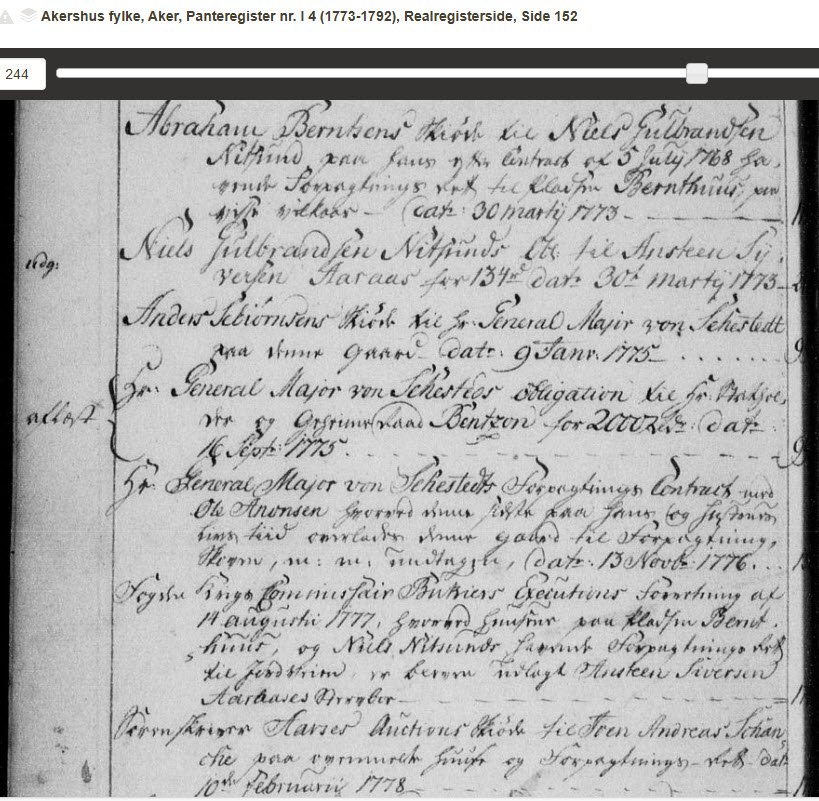 Akershus fylke, Aker, Panteregister nr. I 4 (1773-1792), Realregisterside, Side 152
244
Abraham Berntsens Skiöde til Niels Gulbrandsen
Nitsund paa hans efter Contract af 5 July 1768 ha-
vende Forpagtnings Ret til Pladsen Bernthuus, paa
visse vilkaar – dat: 30 martij 1773
Niels Gulbrandsen Nitsunds Obl: til Ansteen Sy-
versen Aaraas for 134 rd dat: 30t martij 1773
Anders Sebiörnsens Skiöde til Hr. General Major von Sehestedt
paa denne Gaard dat: 9 Janr: 1775
Hr: General Major von Sehesteds obligation til Hr:
og Geheime Raad Bentzon for 2000 dat:
16 Sept: 1775.
aflæst
Hr: General Major von Sehestedts Forpagtnings Contract med
Ole Anonsen hvorved denne sidste paa hans og hustrues
livs tiid overlades denne gaard til Forpagtning,
Skoven, m: m: undtagen, dat: 13 Novbr 1776.
Fogden Krigs Commissair Butziers Executions Forretning af
14 augustii 1777, hvorved huusene paa Pladsen Bernt-
huus, og Niels Nitsunds havende Forpagtnings Ret
til Jordveien, er bleven udlagt Ansteen Siversen
Aaraases Sterboe
Sorenskriver Auctions Skiöde til Joen Andreas Schan-
che paa ovenmelte huuse og Forpagtnings-Ret dat:
10de Februarii 1778